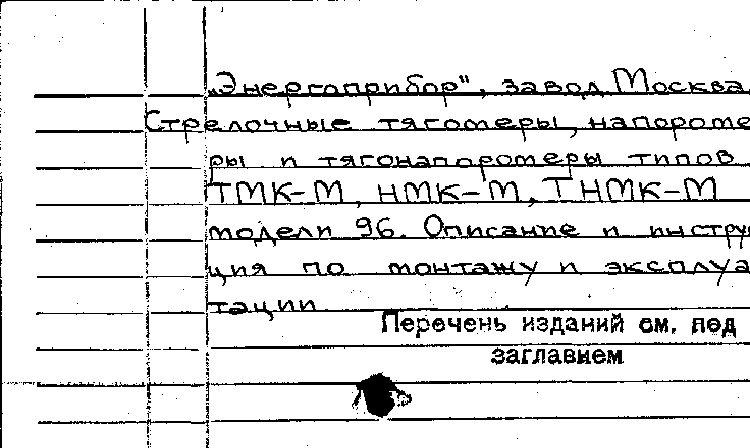 „Энергоприбор", завод Москва.
Стрелочные тягомеры, напороме
ры и тягонапоромеры типов
ТМК-М, НМК-М, ТНМК-М
модели 96. Описание и инстру
ция по монтажу и эксплуа
тации
Перечень изданий см. под
заглавием